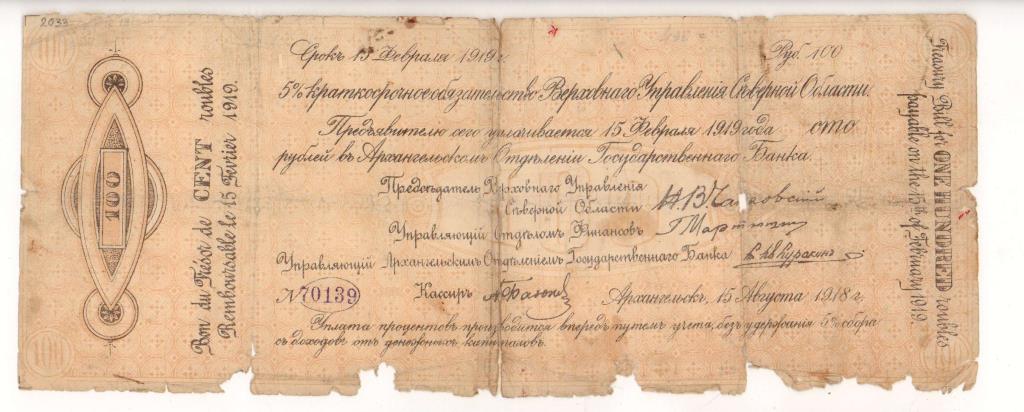 2033
100
Bon du Trésor de CENT roubles
Remboursable le 15 Février 1919.
Срокъ 15 Февраля 1919 г.
Руб. 100
5% краткосрочное обязательство Верховнаго Управленія Сѣверной Области.
Предъявителю сего уплачивается 15 Февраля 1919 года сто
рублей въ Архангельскомъ Отдѣленіи Государственнаго Банка.
Предсѣдатель Верховнаго Управленія
Сѣверной Области Н В Чайковскій
Управляющій Отдѣломъ Финансовъ
Управляющій Архангельскимъ Отдѣленіемъ Государственнаго Банка
№ 70139
Кассиръ
Архангельск, 15 Августа 1918 г.
Уплата процентовъ производится впередъ путемъ учета, безъ удержанія 5% сбора
съ доходовъ отъ денежныхъ капиталовъ.
Treasury Bill for ONE HUNDRED roubles
payable on the 15th of February 1919.
100
100